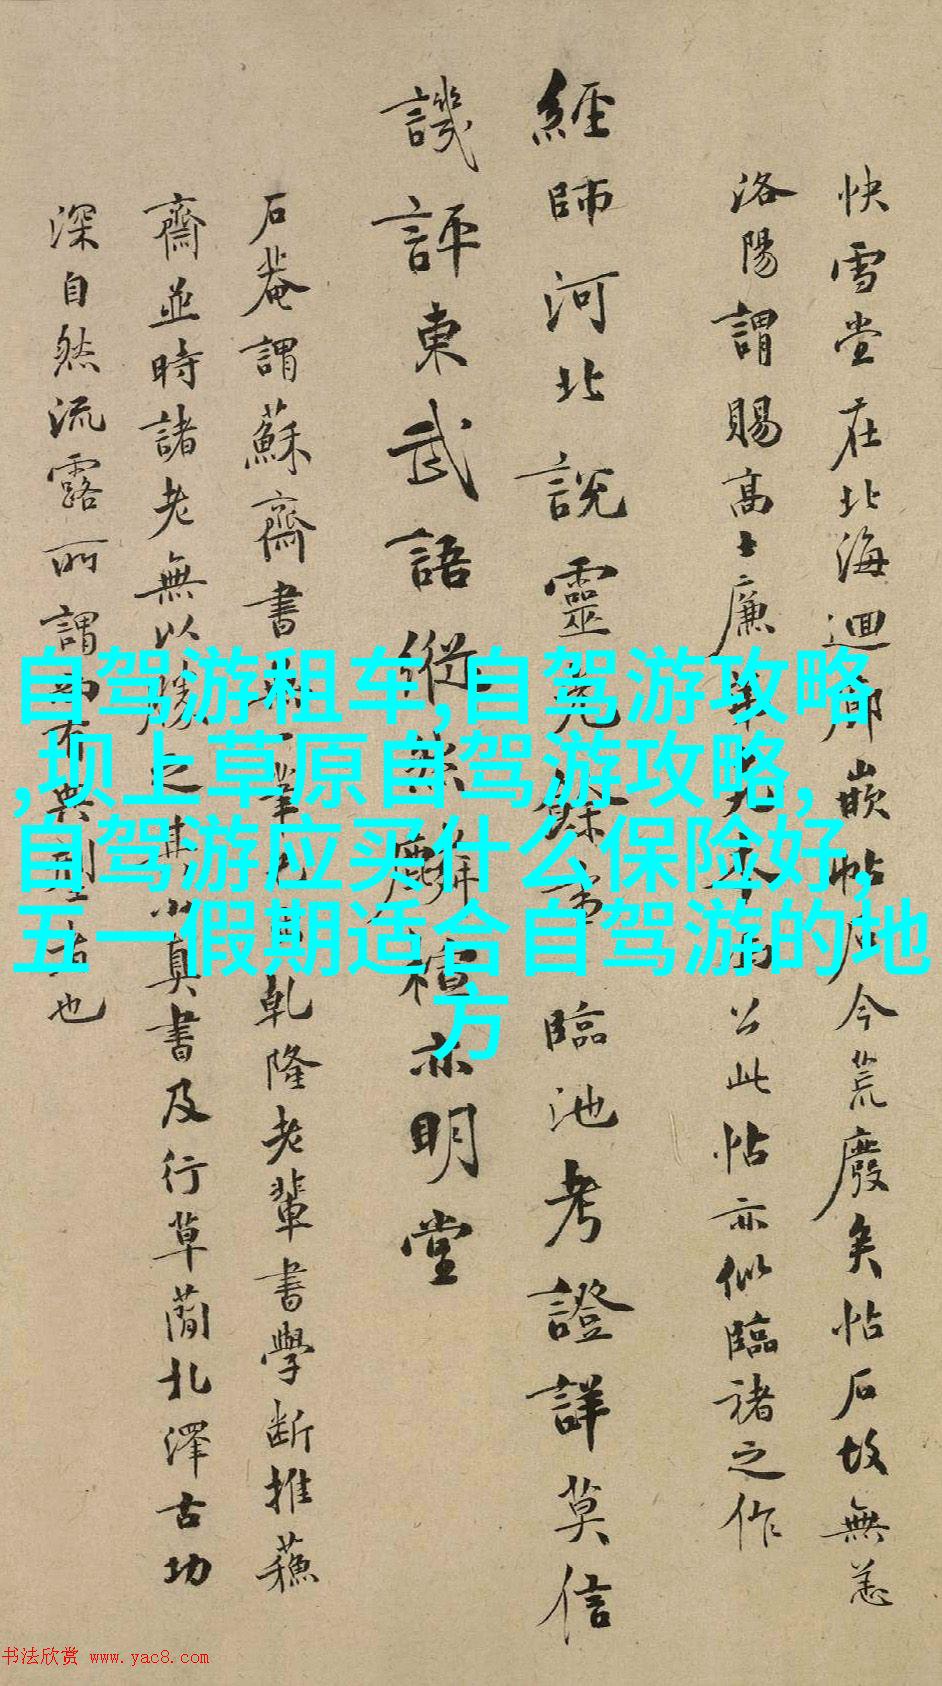 快雪堂在北海迴廊嵌帖石今荒廢矣帖石故無恙
洛陽謂賜高士廉公此帖亦似臨褚之作
經師河北說靈光餘事臨池考證詳莫信
譏評東武語縱禮亦明堂
石菴謂蘇齋書乾隆老輩書學斷推蘇
齋並時諸老無以勝之其小真書及行草北澤古功
深自然流露所謂也
自驾游租车,自驾游攻略
,坝上草原自驾游攻略,
自驾游应买什么保险好,
五一假期适合自驾游的地
方
书法欣赏 www.yac8.com